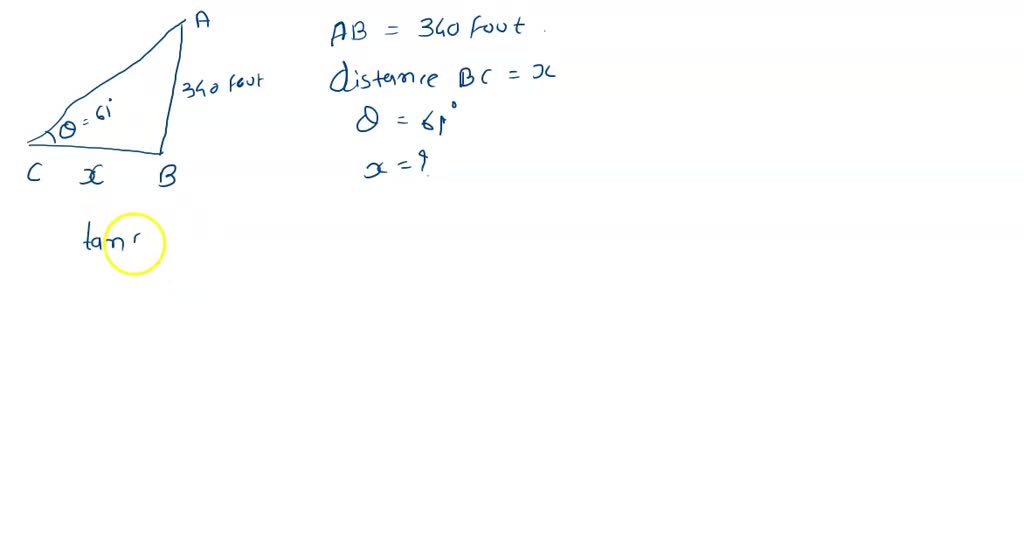 A
340 Fout
θ = 61°
C x B
AB = 340 Fout.
distance BC = x
θ = 61°
x = ?
tan